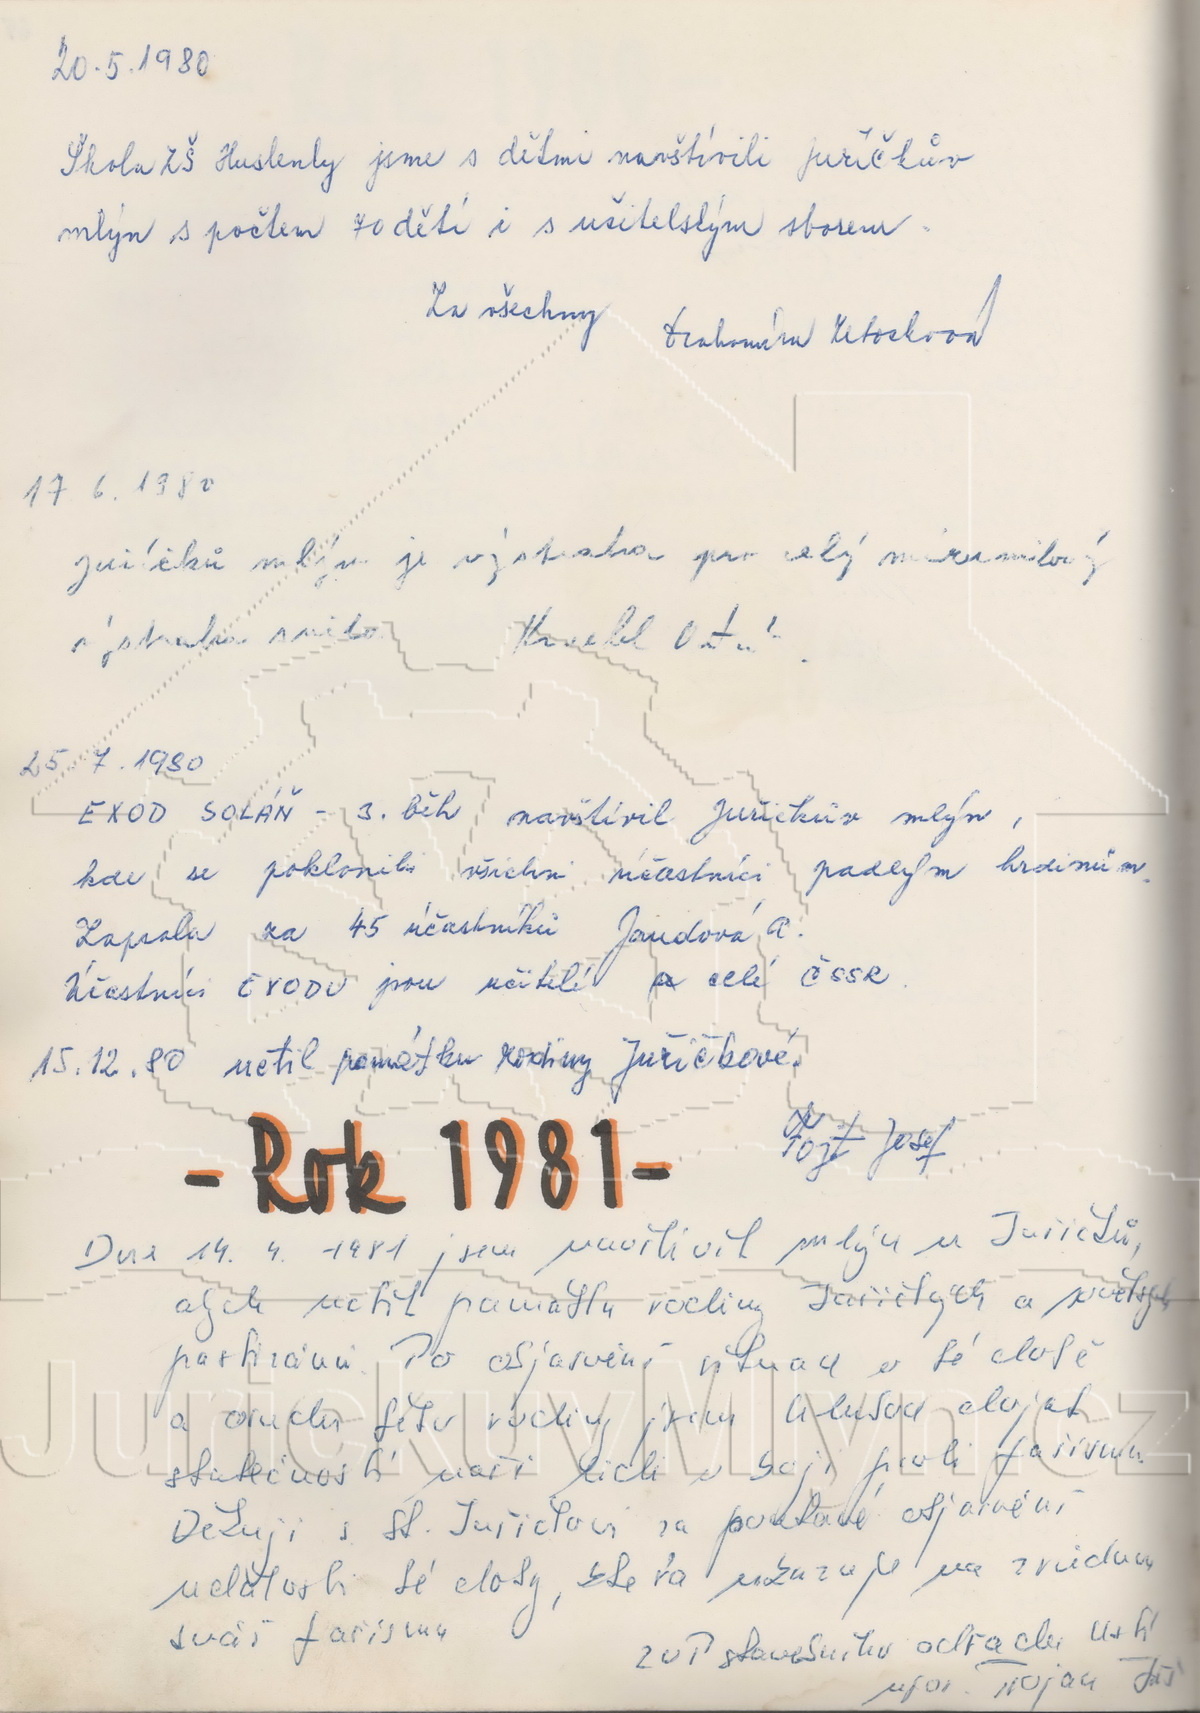 20.5.1980
Škola ZŠ Huslenky jsme s dětmi navštívili Juříčkův
mlýn s počtem 70 dětí i s učitelským sborem.
Za všechny Drahomíra
17 6. 1980
Juříčků mlýn je výstraha pro celý mírumilový
výstraha
25.7.1980
EXOD SOLÁŇ - 3. běh navštívil Juříčkův mlýn,
kde se poklonili všichni účastníci padlým hrdinům.
Zapsala za 45 účastníků Jandová A.
Účastníci EXODU jsou učitelé z celé ČSSR.
15.12.80 uctil památku rodiny Juříčkové.
Fojt Josef
- Rok 1981 -
Dne 14. 4. 1981 jsem navštívil mlýn u Juříčků,
abych uctil památku rodiny Juříčkých a
partizánů. Po objasnění situace v té době
a osudu této rodiny jsem hluboce dojat
statečností naší lidí v boji proti fašismu.
Děkuji s. st. Juříčkovi za poutavé objasnění
událostí té doby, která ukazuje na zrůdnou
tvář fašismu
ZVP stavebního odřadu Ústí
npor. Trojan
JurickuvMlyn.cz